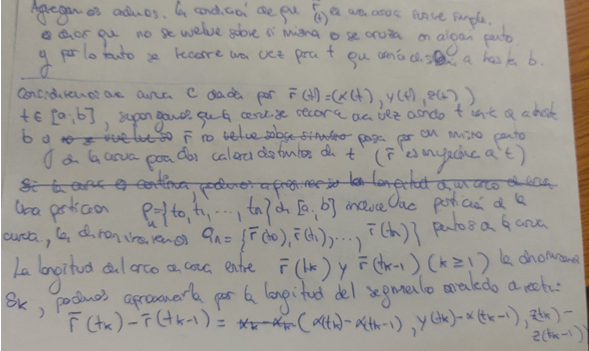 Agregamos además, la condición de que r̄(t) es una curva suave simple,
es decir que no se vuelve sobre si misma o se cruza en algún punto
y por lo tanto se recorre una vez para t que varía desde a hasta b.
Consideremos una curva C dada por r̄(t)=(x(t), y(t), z(t))
t∈[a,b], supongamos que la curva se recorre una vez cuando t varía de a hasta
b y r̄ no pasa por un mismo punto
de la curva para dos valores distintos de t (r̄ es inyectiva a t)
Si la curva es continua podemos aproximar la longitud de un arco de curva
Una partición P={t0, t1, ..., tn} de [a,b] induce una partición de la
curva, la denominaremos Qn={r̄(t0), r̄(t1), ..., r̄(tn)} puntos de la curva
La longitud del arco de curva entre r̄(tk) y r̄(tk-1) (k≥1) la
Sk, podemos aproximarla por la longitud del segmento
r̄(tk)-r̄(tk-1) = (x(tk)-x(tk-1), y(tk)-x(tk-1), z(tk)-
z(tk-1))